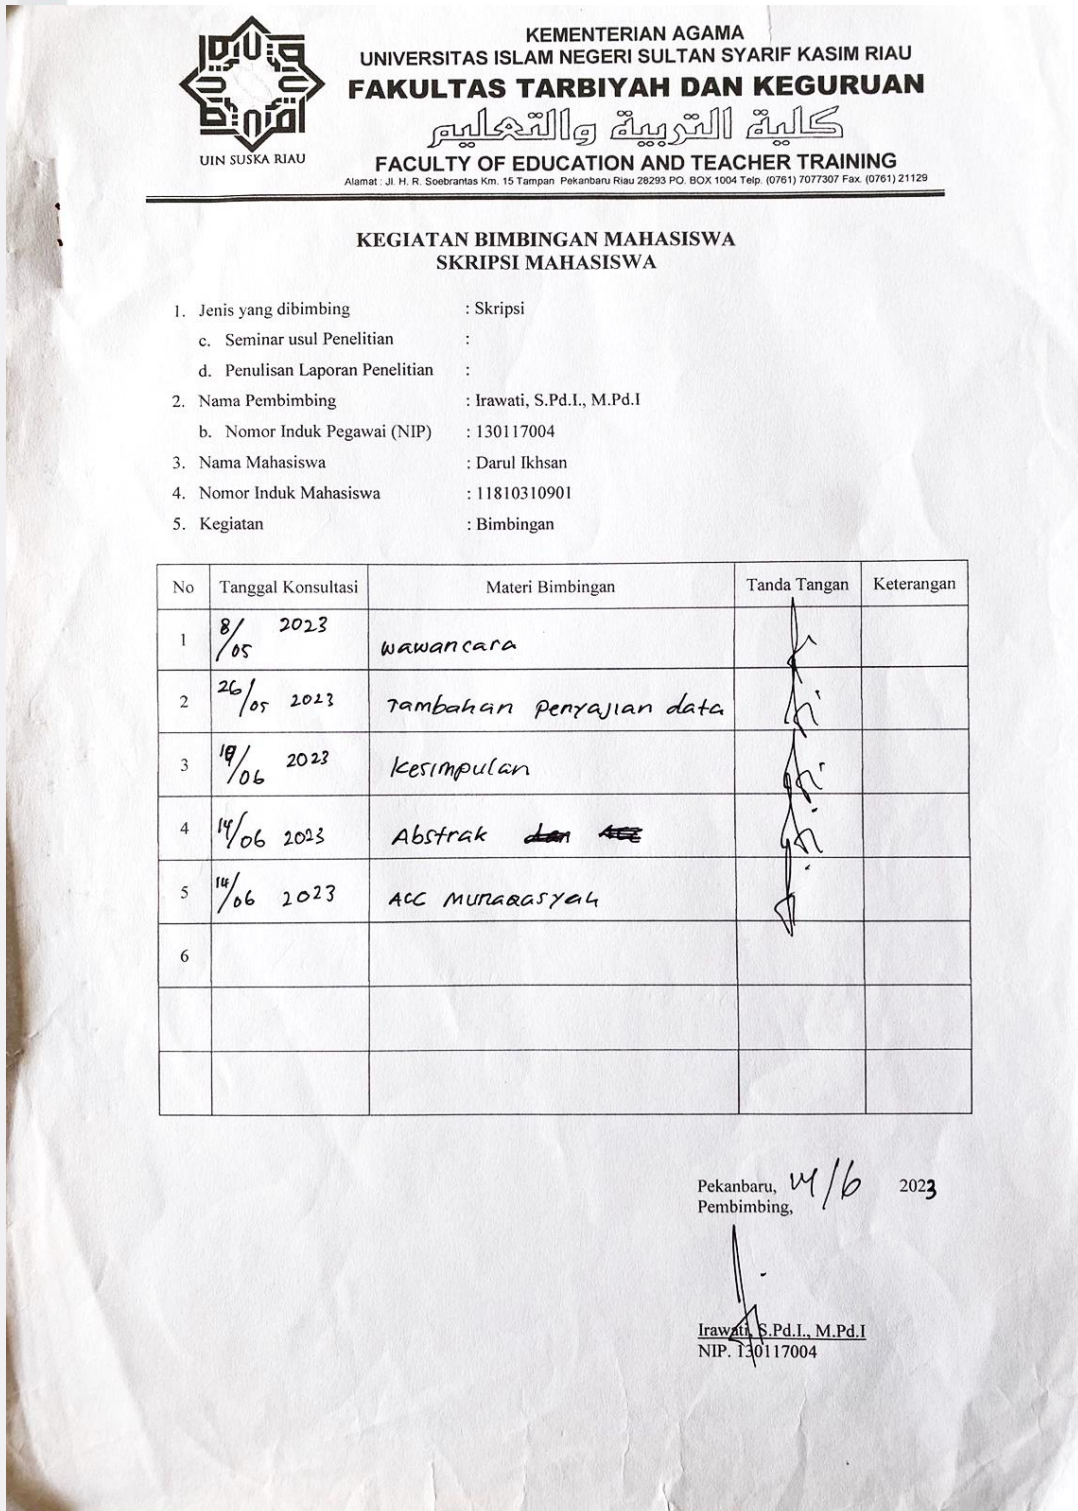 KEMENTERIAN AGAMA
UNIVERSITAS ISLAM NEGERI SULTAN SYARIF KASIM RIAU
FAKULTAS TARBIYAH DAN KEGURUAN
كلية التربية والتعليم
FACULTY OF EDUCATION AND TEACHER TRAINING
Alamat : Jl. H. R. Soebrantas Km. 15 Tampan Pekanbaru Riau 28293 PO. BOX 1004 Telp. (0761) 7077307 Fax. (0761) 21129
UIN SUSKA RIAU
KEGIATAN BIMBINGAN MAHASISWA
SKRIPSI MAHASISWA
1. Jenis yang dibimbing : Skripsi
c. Seminar usul Penelitian :
d. Penulisan Laporan Penelitian :
2. Nama Pembimbing : Irawati, S.Pd.I., M.Pd.I
b. Nomor Induk Pegawai (NIP) : 130117004
3. Nama Mahasiswa : Darul Ikhsan
4. Nomor Induk Mahasiswa : 11810310901
5. Kegiatan : Bimbingan
No Tanggal Konsultasi Materi Bimbingan Tanda Tangan Keterangan
1 8/05 2023 wawancara
2 26/05 2023 Tambahan penyajian data
3 /06 2023 Kesimpulan
4 14/06 2023 Abstrak
5 14/06 2023 ACC Munaqasyah
6
Pekanbaru, 14/6 2023
Pembimbing,
Irawati, S.Pd.I., M.Pd.I
NIP. 130117004